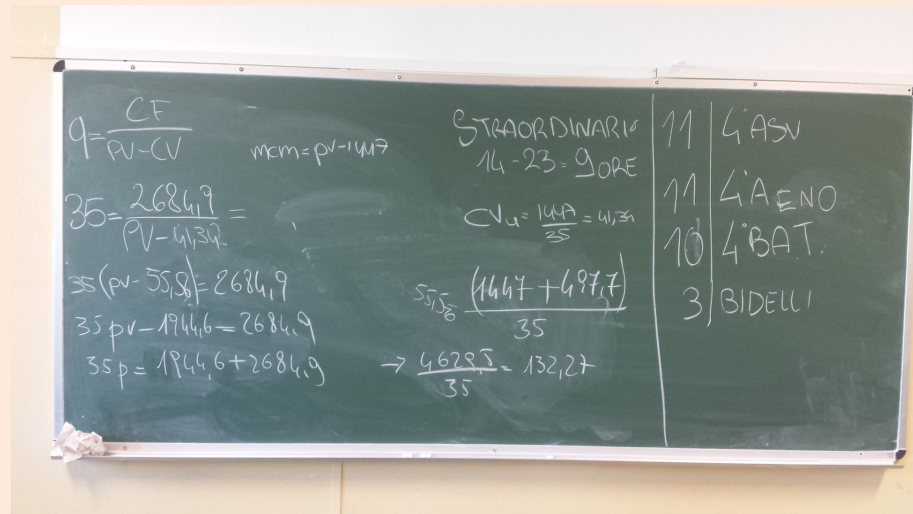 q = CF / PV-CV
mcm = pv-1447
35 = 2684,9 / PV-41,34 =
35(pv-55,56) = 2684,9
35pv-1944,6=2684,9
35p= 1944,6+2684,9
STRAORDINARIO
14-23=9 ORE
CVu= 1447 / 35 = 41,34
55,56 (1447+497,7) / 35
→ 4629,5 / 35 = 132,27
11 4ªASV
11 4ªA ENO
10 4ªBAT.
3 BIDELLI